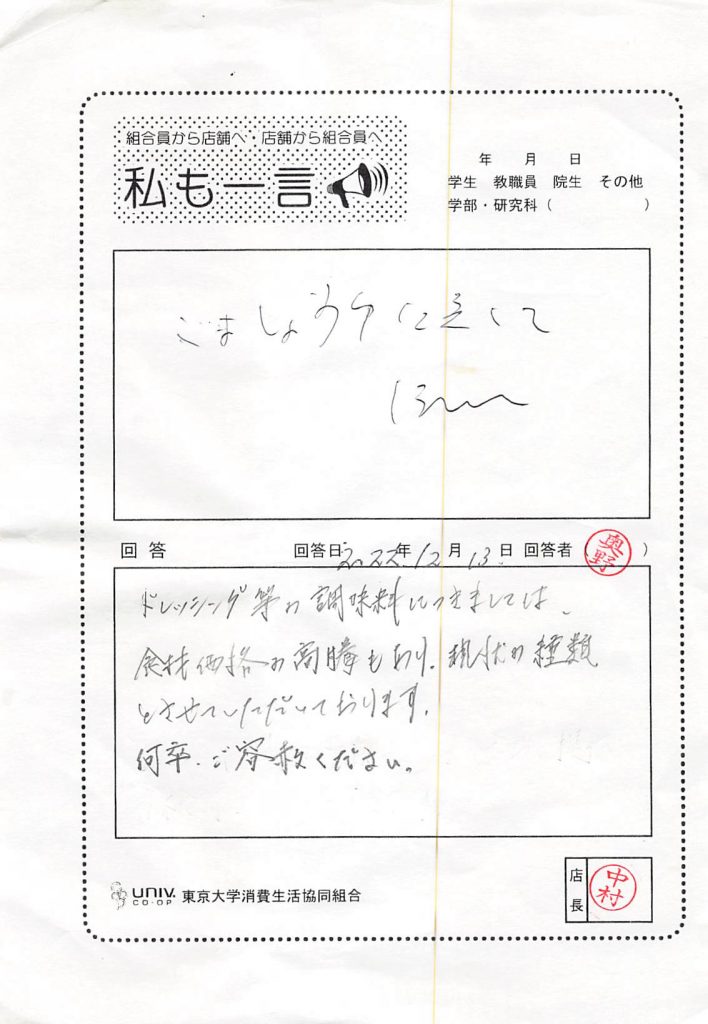 組合員から店舗へ・店舗から組合員へ
私も一言
年 月 日
学生 教職員 院生 その他
学部・研究科( )
ごましょうゆに
ほしい
回答 回答日 2022年12月13日 回答者 奥野 )
ドレッシング等の調味料につきましては、
食材価格の高騰もあり、現状の種類
とさせていただいております。
何卒、ご容赦ください。
UNIV. CO-OP 東京大学消費生活協同組合
店長 中村